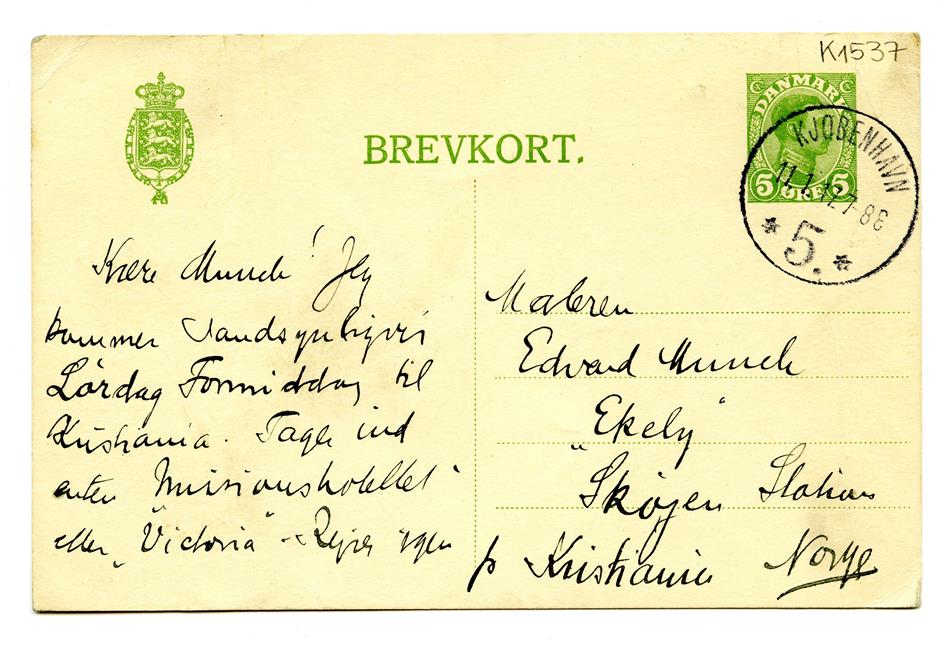 K1537
DANMARK
5 ØRE 5
KJØBENHAVN
5.
BREVKORT.
Kære Munch! Jeg
kommer sandsynligvis
Lørdag Formiddag til
Kristiania. Tager ind
enten "Missionshotellet"
eller "Victoria" - Rejser igen
Maleren
Edvard Munch
"Ekely"
Skøjen Station
pr Kristiania Norge